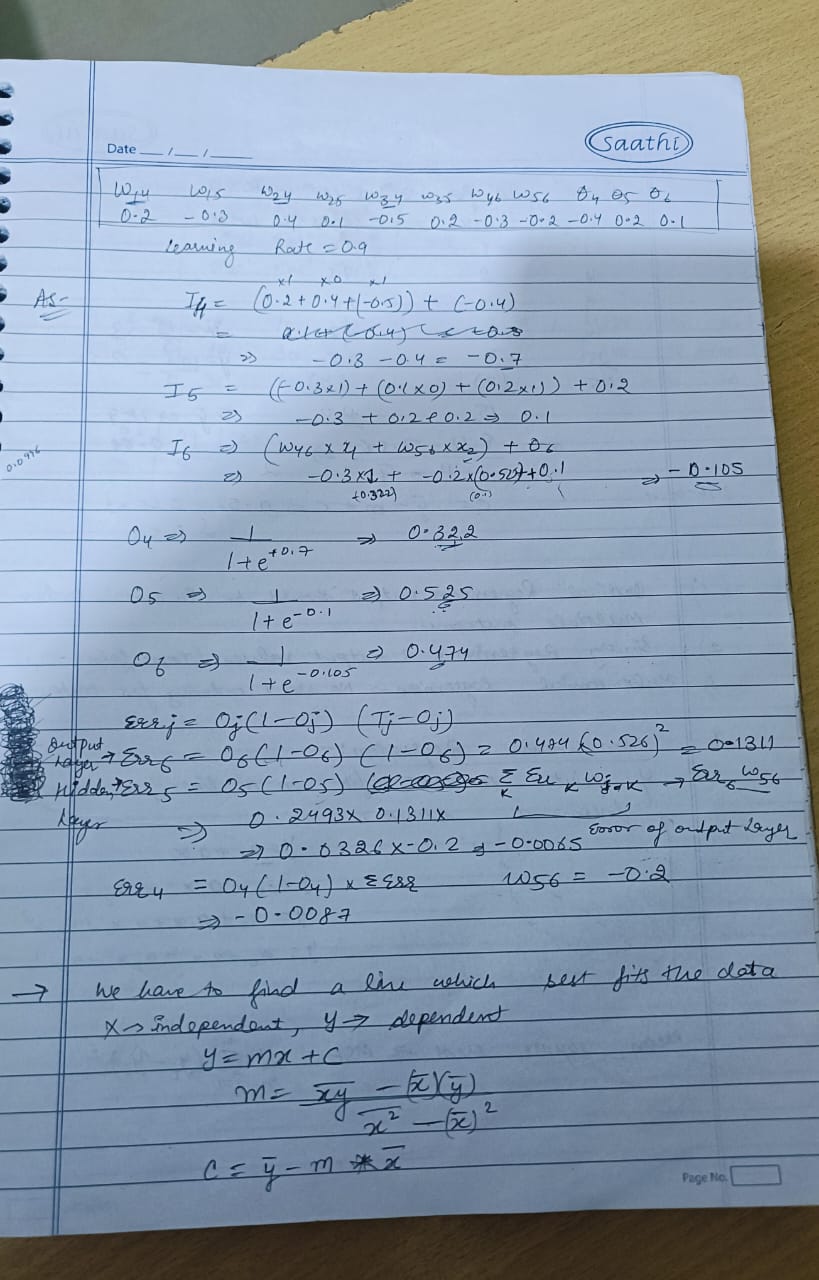 Saathi
Date __/__/____
W14 W15 W24 W25 W34 W35 W46 W56 θ4 θ5 θ6
0.2 -0.3 0.4 0.1 -0.5 0.2 -0.3 -0.2 -0.4 0.2 0.1
Learning Rate = 0.9
x1 x0 x1
As- I4 = (0.2 + 0.4 + (-0.5)) + (-0.4)
=
=> -0.3 - 0.4 = -0.7
I5 = ((-0.3x1) + (0.1x0) + (0.2x1)) + 0.2
=> -0.3 + 0.2 + 0.2 => 0.1
I6 => (W46 x x1 + W56 x x2) + θ6
0.0976
=> -0.3x1 + -0.2x(0.525)+0.1 => -0.105
(0.322) (0.1)
O4 => 1/(1+e^+0.7) => 0.322
O5 => 1/(1+e^-0.1) => 0.525
O6 => 1/(1+e^-0.105) => 0.474
Errj = Oj(1-Oj) (Tj-Oj)
Output Layer → Err6 = O6(1-O6) (1-O6) = 0.474 (0.526)² = 0.1311
Hidden Layer → Err5 = O5(1-O5) Σ Err K Wj K → Err6 W56
K
=> 0.2493 x 0.1311 x
Error of output Layer
=> 0.0326 x -0.2 = -0.0065
Err4 = O4(1-O4) x Σ Err W56 = -0.2
=> -0.0087
→ We have to find a line which best fits the data
X → independent, y → dependent
y = mx + c
m = (x̄ȳ - (x̄)(ȳ)) / (x̄² - (x̄)²)
C = ȳ - m * x̄
Page No.